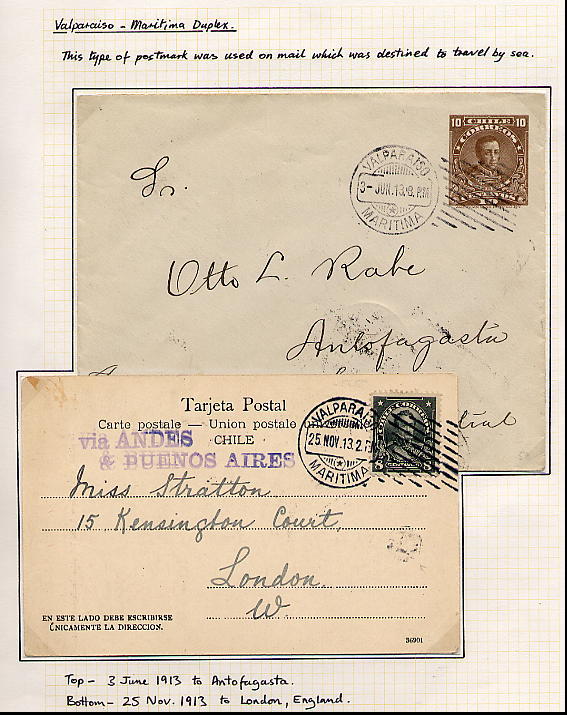 Valparaiso - Maritima Duplex.
This type of postmark was used on mail which was destined to travel by sea.
10 CHILE 10
CORREOS
VALPARAISO
3- JUN. 13. 8. P.M
MARITIMA
Sr.
Otto L. Rabe
Antofagasta
Tarjeta Postal
Carte postale — Union postale
CHILE
via ANDES
& BUENOS AIRES
VALPARAISO
25 NOV. 13. 2.
MARITIMA
Miss Stratton
15 Kensington Court,
London.
W.
EN ESTE LADO DEBE ESCRIBIRSE
ÚNICAMENTE LA DIRECCION.
36901
Top - 3 June 1913 to Antofagasta.
Bottom - 25 Nov. 1913 to London, England.